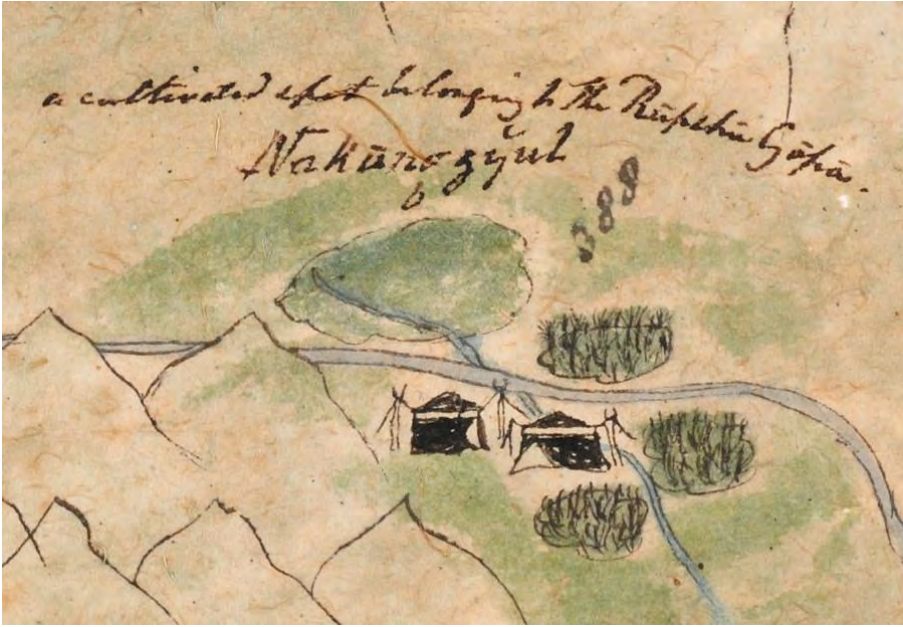 a cultivated spot belonging to the Rūpshū Gōpā.
Nakūnogyŭl
388